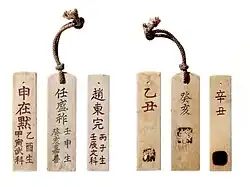 申在黙
乙酉生
甲寅武科
任盛祚
壬申生
癸亥
趙東完
丙子生
壬辰文科
乙丑
癸亥
辛丑